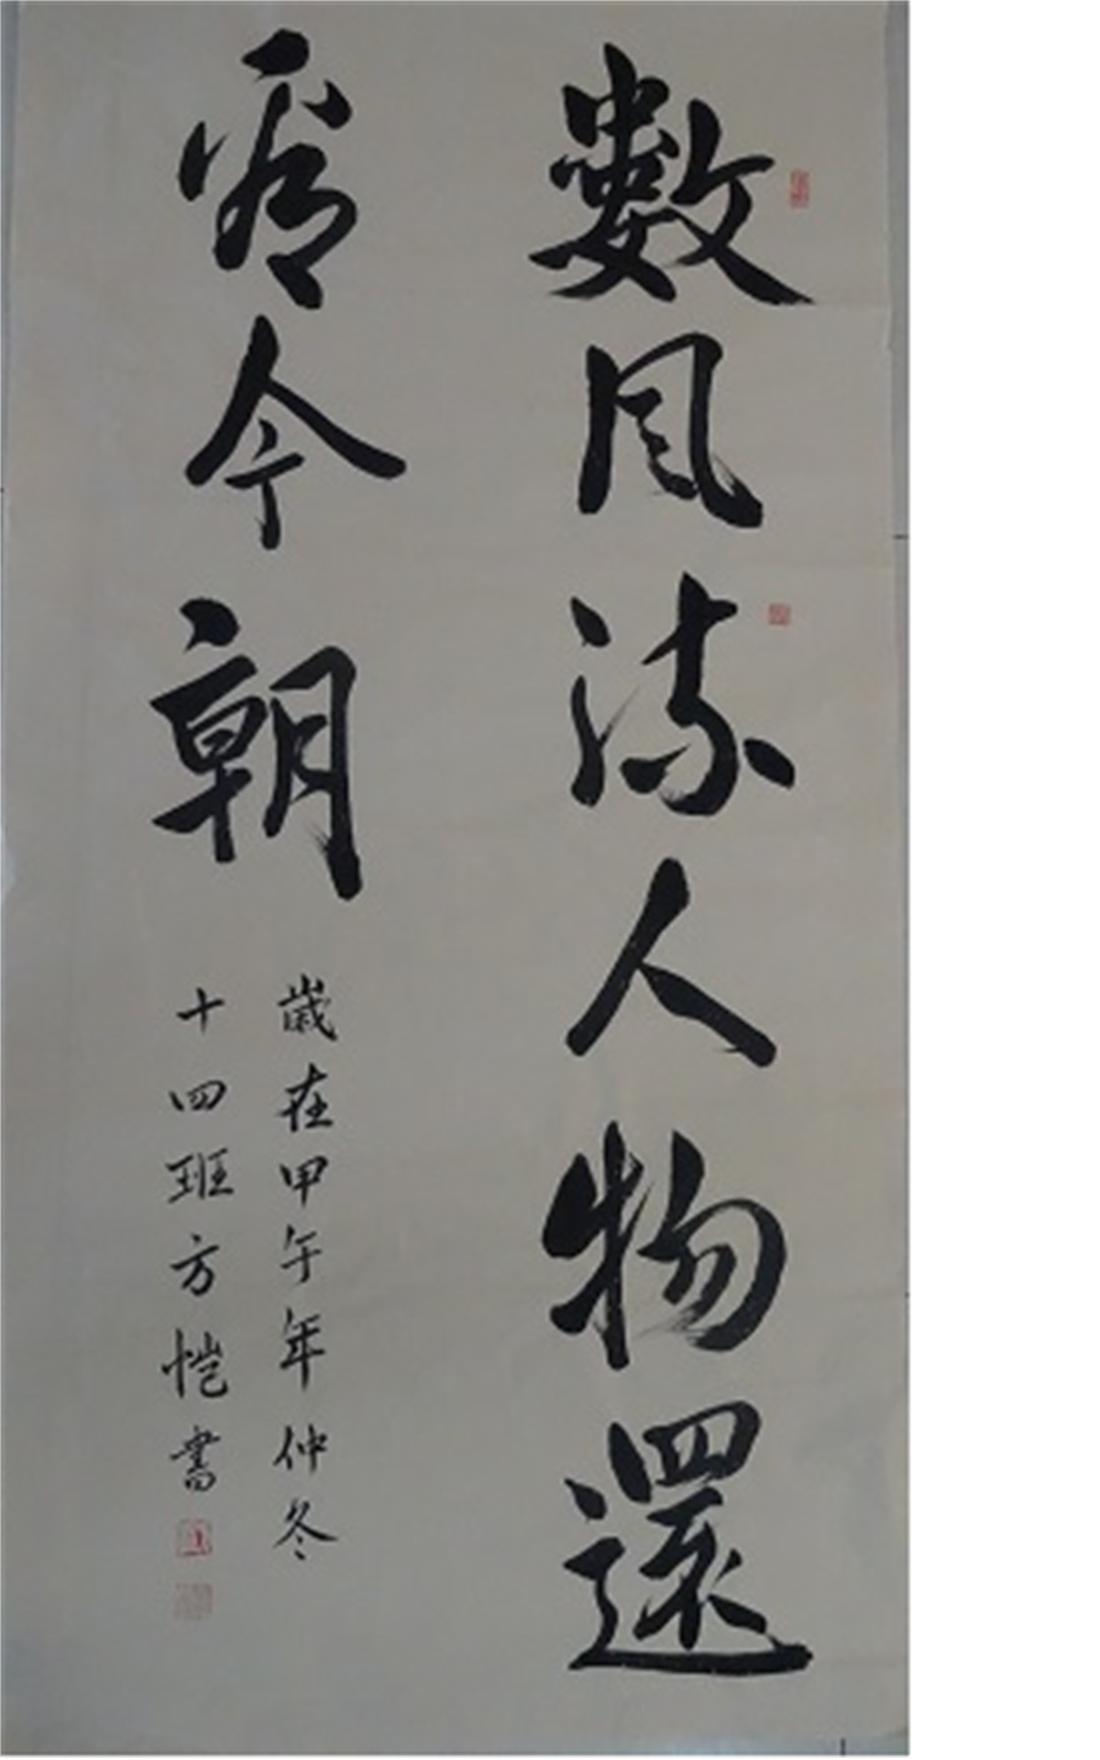 數風流人物還
看今朝
歲在甲午年仲冬
十四班方恺書